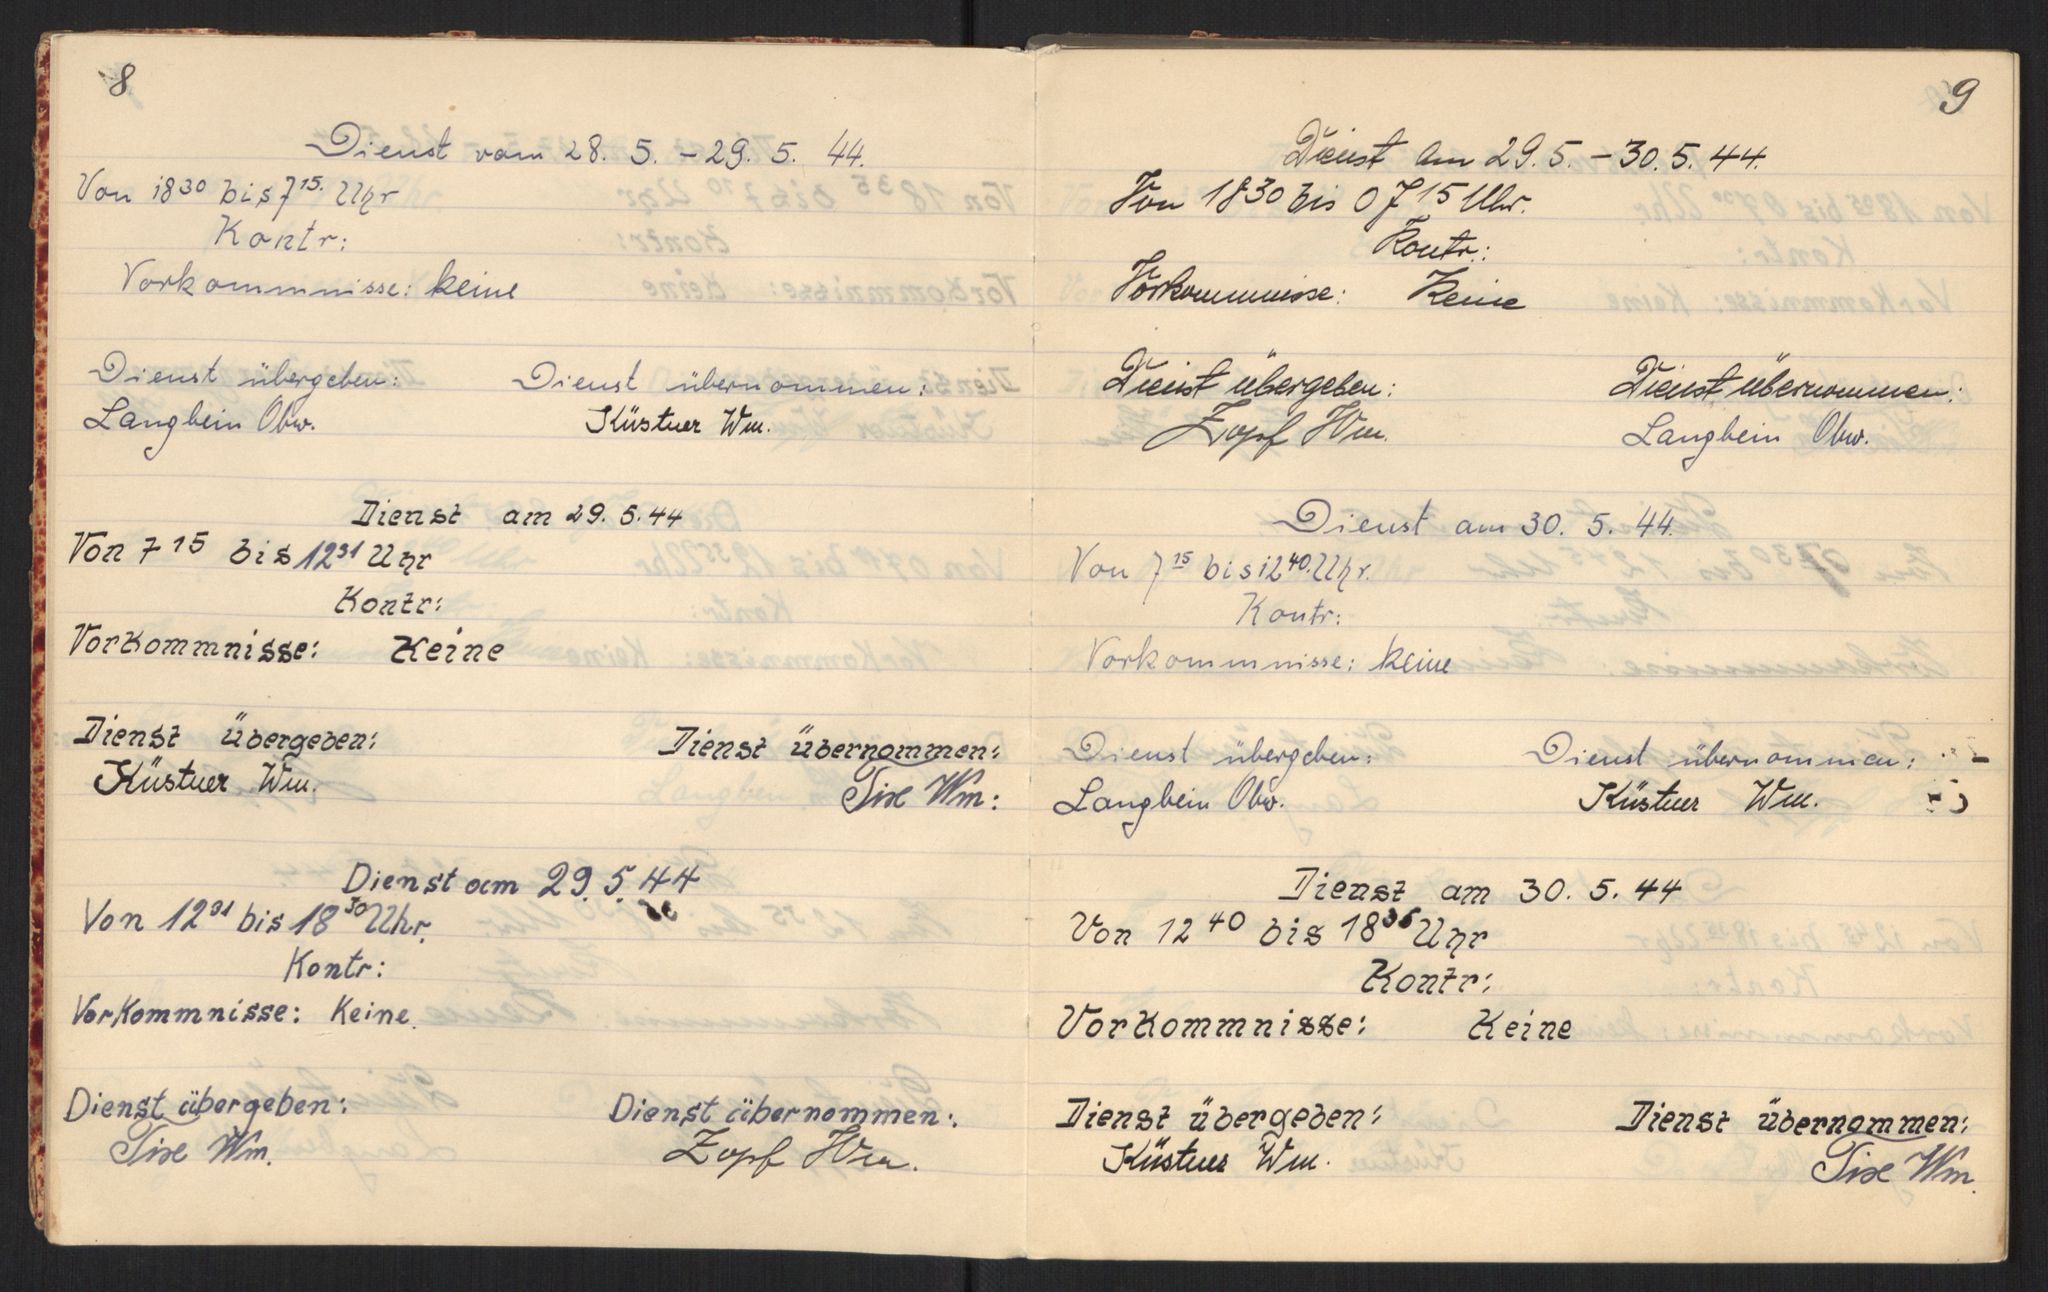 8
Dienst vom 28. 5. - 29. 5. 44.
Von 18 30 bis 7 15. Uhr
Kontr:
Vorkommnisse: keine
Dienst übergeben: Dienst übernommen:
Langbein Obw. Küstner Wm.
Dienst am 29. 5. 44
Von 7 15 bis 12 31 Uhr
Kontr:
Vorkommnisse: Keine
Dienst übergeben: Dienst übernommen:
Küstner Wm. Tixe Wm:
Dienst am 29. 5. 44
Von 12 31 bis 18 30 Uhr.
Kontr:
Vorkommnisse: Keine.
Dienst übergeben: Dienst übernommen:
Tixe Wm. Zopf Wm.
9
Dienst am 29. 5. - 30. 5. 44.
Von 18 30 bis 07 15 Uhr.
Kontr.:
Vorkommnisse: Keine
Dienst übergeben: Dienst übernommen:
Zopf Wm. Langbein Obw.
Dienst am 30. 5. 44.
Von 7 15 bis 12 40. Uhr.
Kontr:
Vorkommnisse: keine
Dienst übergeben: Dienst übernommen:
Langbein Obw. Küstner Wm.
Dienst am 30. 5. 44
Von 12 40 bis 18 35 Uhr
Kontr:
Vorkommnisse: Keine
Dienst übergeben: Dienst übernommen:
Küstner Wm. Tixe Wm.